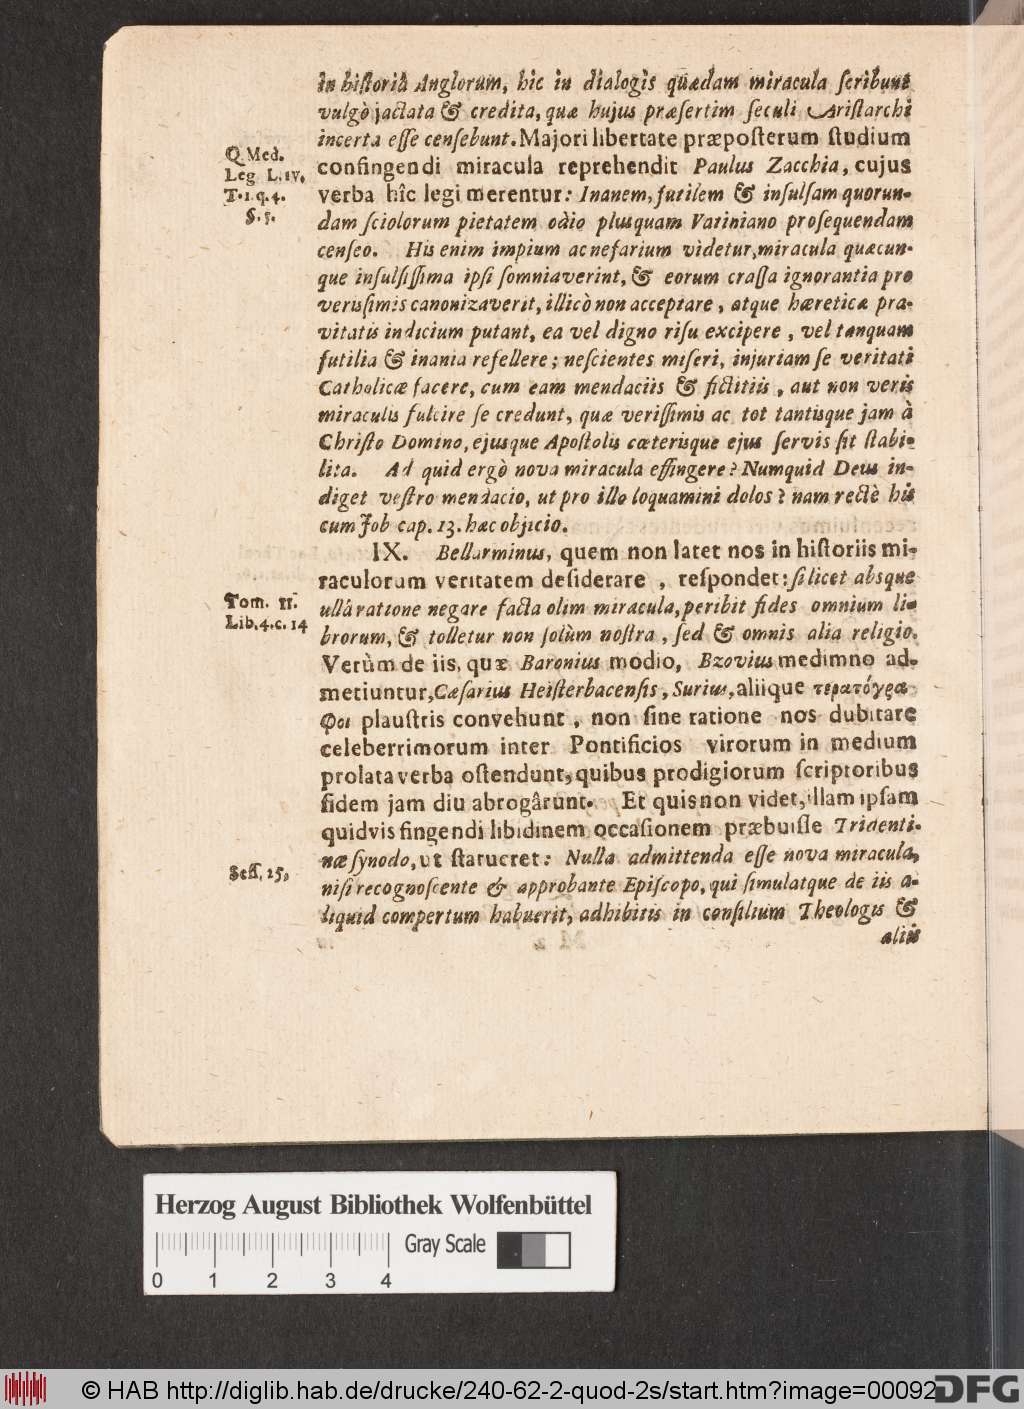 in historiâ Anglorum, hic in dialogis quædam miracula scribunt
vulgò jactata & credita, quæ hujus præsertim seculi Aristarchi
incerta esse censebunt. Majori libertate præposterum studium
confingendi miracula reprehendit Paulus Zacchia, cujus
Q Med.
Leg L. iv.
T. 1. q. 4.
§. 5.
verba hîc legi merentur: Inanem, futilem & insulsam quorun-
dam sciolorum pietatem odio plusquam Vatiniano prosequendam
censeo. His enim impium ac nefarium videtur, miracula quæcun-
que insulsissima ipsi somniaverint, & eorum crassa ignorantia pro
verissimis canonizaverit, illicò non acceptare, atque hæreticæ pra-
vitatis indicium putant, ea vel digno risu excipere, vel tanquam
futilia & inania refellere; nescientes miseri, injuriam se veritati
Catholicæ facere, cum eam mendaciis & fictitiis, aut non veris
miraculis fulcire se credunt, quæ verissimis ac tot tantisque jam à
Christo Domino, ejusque Apostolis cæterisque ejus servis sit stabi-
lita. Ad quid ergò nova miracula effingere? Numquid Deus in-
diget vestro mendacio, ut pro illo loquamini dolos? nam rectè his
cum Job cap. 13. hæc objicio.
IX. Bellarminus, quem non latet nos in historiis mi-
raculorum veritatem desiderare, respondet: si licet absque
Tom. II.
Lib. 4. c. 14
ullâ ratione negare facta olim miracula, peribit fides omnium li-
brorum, & tolletur non solùm nostra, sed & omnis alia religio.
Verùm de iis, quæ Baronius modio, Bzovius medimno ad-
metiuntur, Cæsarius Heisterbacensis, Surius, aliique τερατόγρα-
φοι plaustris convehunt, non sine ratione nos dubitare
celeberrimorum inter Pontificios virorum in medium
prolata verba ostendunt, quibus prodigiorum scriptoribus
fidem jam diu abrogârunt. Et quis non videt, illam ipsam
quidvis fingendi libidinem occasionem præbuisse Tridenti-
næ synodo, ut statueret: Nulla admittenda esse nova miracula,
Seff. 15,
nisi recognoscente & approbante Episcopo, qui simulatque de iis a-
liquid compertum habuerit, adhibitis in consilium Theologis &
aliis
Herzog August Bibliothek Wolfenbüttel
Gray Scale
0 1 2 3 4
© HAB http://diglib.hab.de/drucke/240-62-2-quod-2s/start.htm?image=00092
DFG